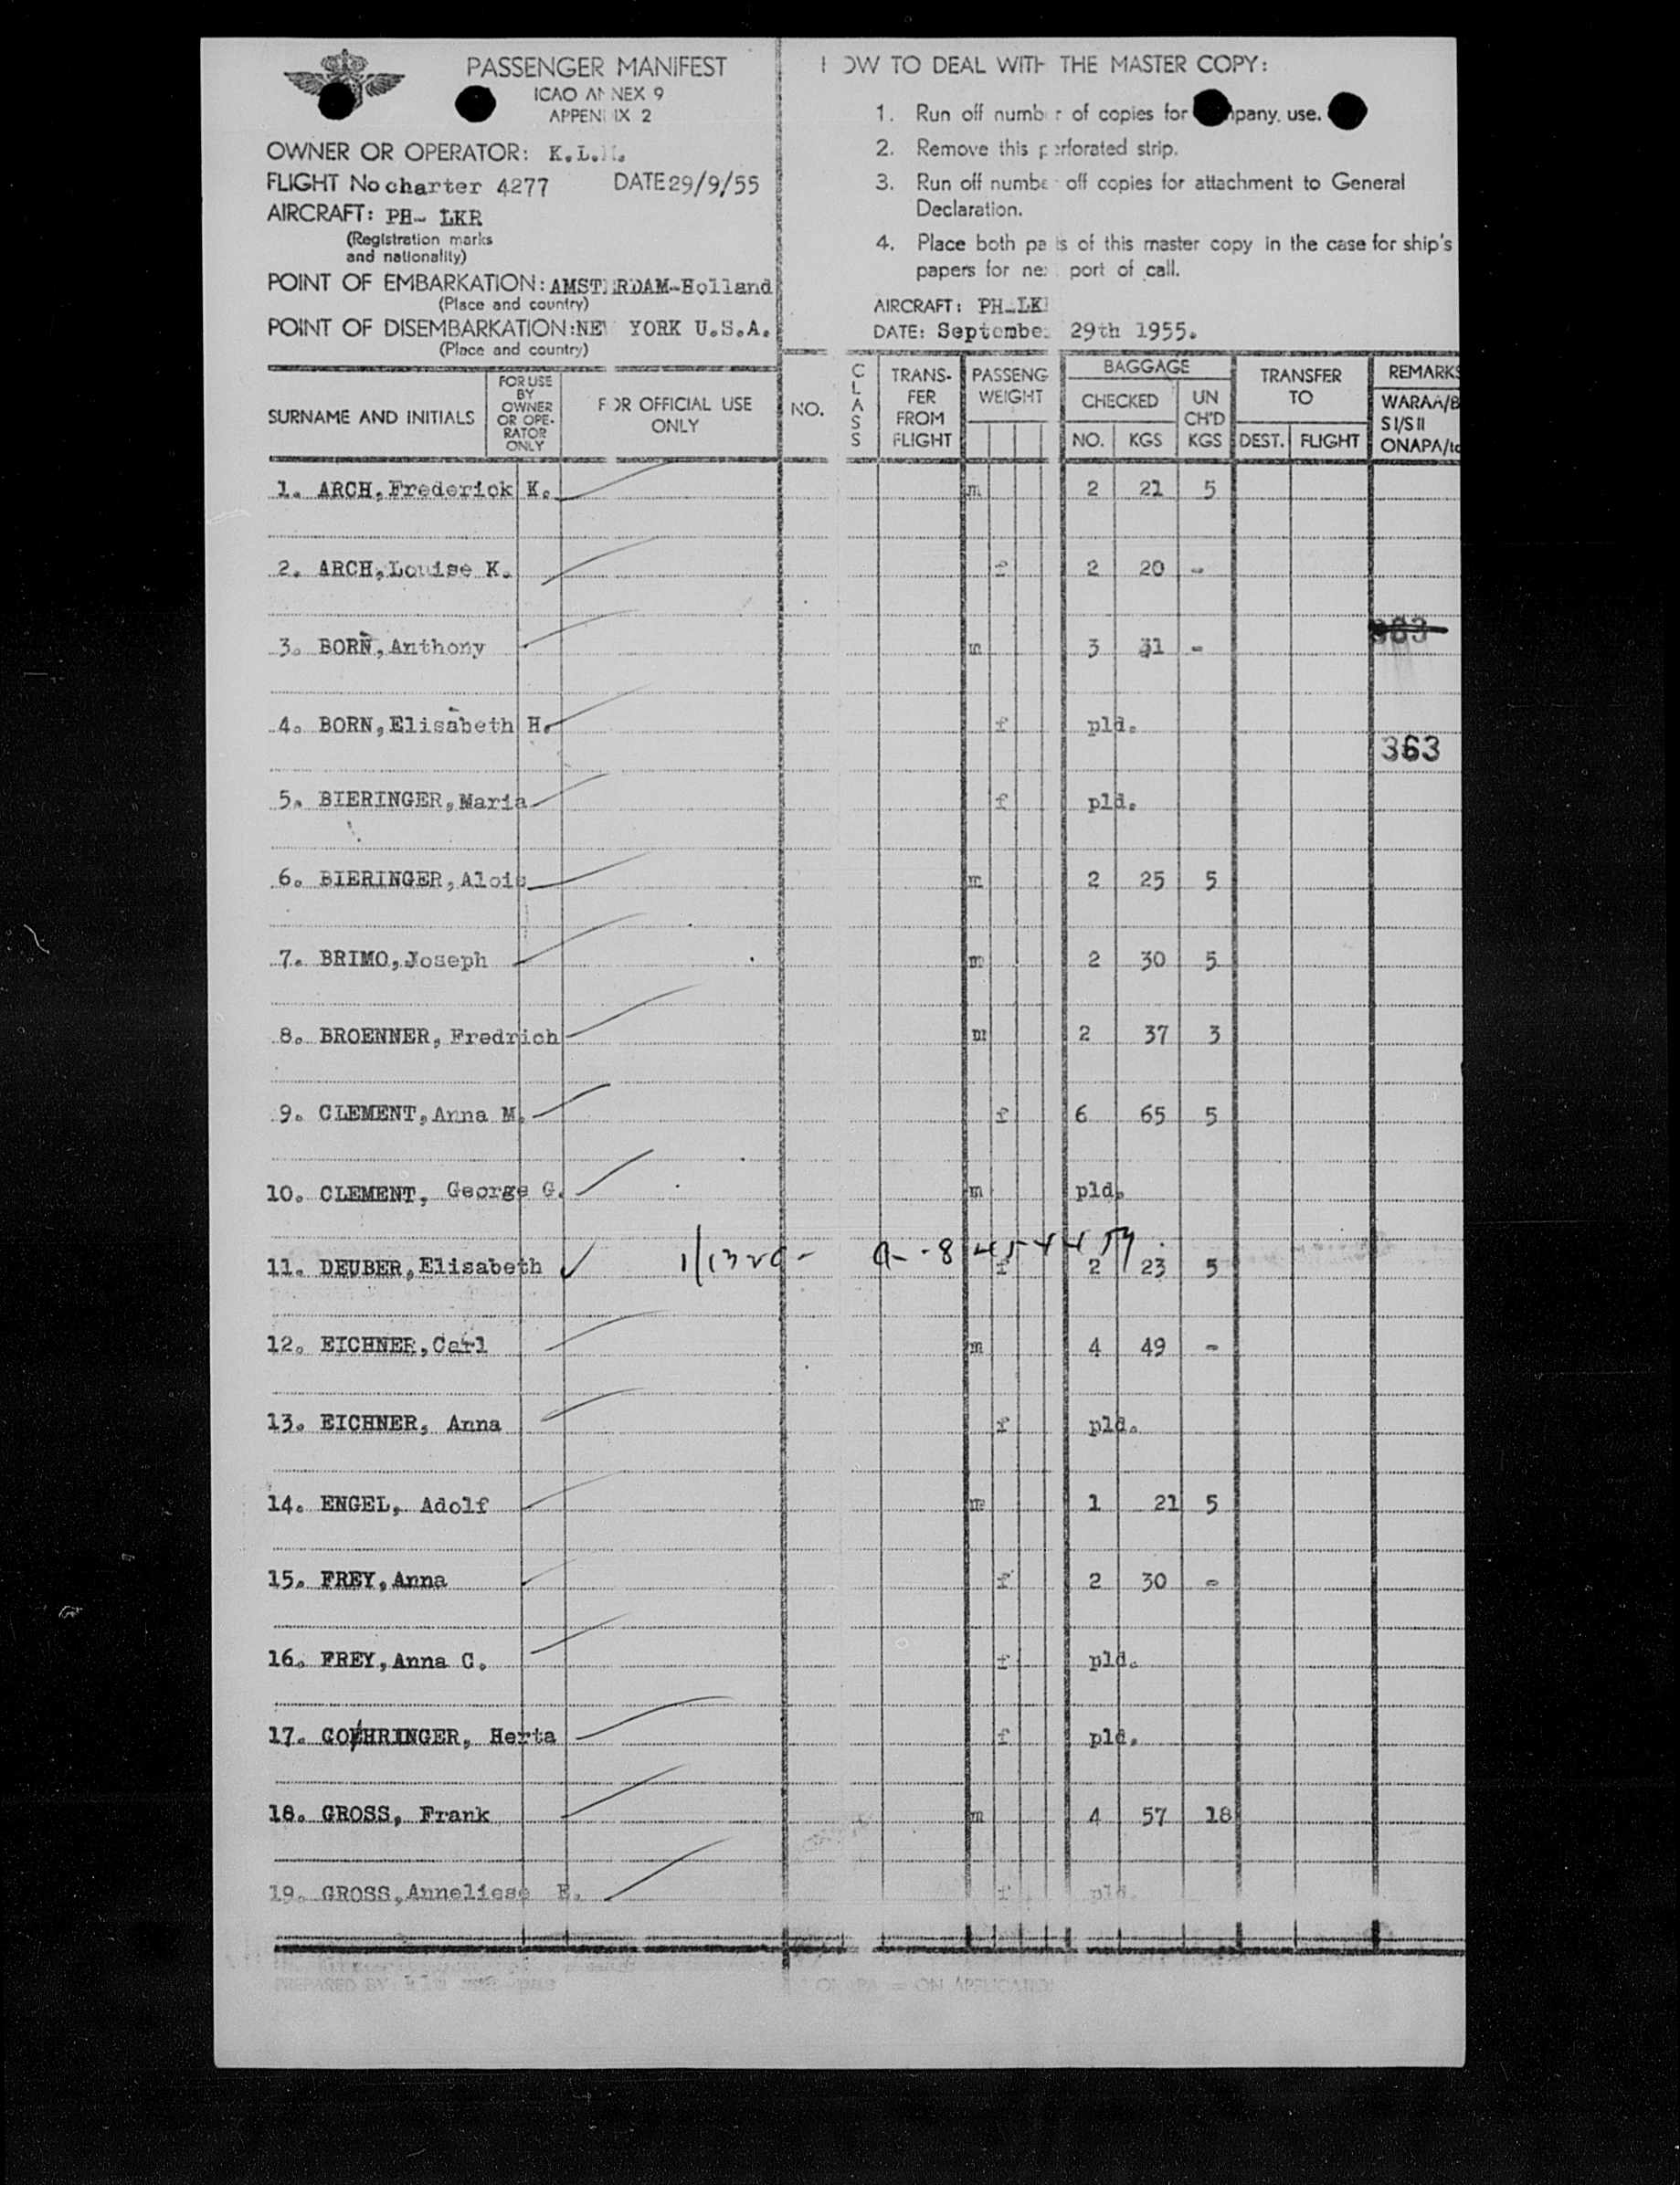 PASSENGER MANIFEST
ICAO ANNEX 9
APPENDIX 2
OWNER OR OPERATOR: K.L.M.
FLIGHT No charter 4277 DATE 29/9/55
AIRCRAFT: PH- LKR
(Registration marks
and nationality)
POINT OF EMBARKATION: AMSTERDAM-Holland
(Place and country)
POINT OF DISEMBARKATION: NEW YORK U.S.A.
(Place and country)
HOW TO DEAL WITH THE MASTER COPY:
1. Run off number of copies for company use.
2. Remove this perforated strip.
3. Run off number off copies for attachment to General
Declaration.
4. Place both parts of this master copy in the case for ship's
papers for next port of call.
AIRCRAFT: PH-LK
DATE: September 29th 1955.
SURNAME AND INITIALS
FOR USE
BY
OWNER
OR OPE-
RATOR
ONLY
FOR OFFICIAL USE
ONLY
NO.
CLASS
TRANS-
FER
FROM
FLIGHT
PASSENG
WEIGHT
BAGGAGE
CHECKED
NO. KGS
UN
CH'D
KGS
TRANSFER
TO
DEST. FLIGHT
REMARKS
WARAA/B
SI/SII
ONAPA/to
1. ARCH, Frederick K. m 2 21 5
2. ARCH, Louise K. f 2 20 -
363
3. BORN, Anthony m 3 31 -
4. BORN, Elisabeth H. f pld.
363
5. BIERINGER, Maria f pld.
6. BIERINGER, Alois m 2 25 5
7. BRIMO, Joseph m 2 30 5
8. BROENNER, Fredrich m 2 37 3
9. CLEMENT, Anna M. f 6 65 5
10. CLEMENT, George G. m pld.
11. DEUBER, Elisabeth f 2 23 5
12. EICHNER, Carl m 4 49 -
13. EICHNER, Anna f pld.
14. ENGEL, Adolf m 1 21 5
15. FREY, Anna f 2 30 -
16. FREY, Anna C. f pld.
17. GOEHRINGER, Herta f pld.
18. GROSS, Frank m 4 57 18
19. GROSS, Anneliese E. f pld.
PREPARED BY
= ON APPLICATION